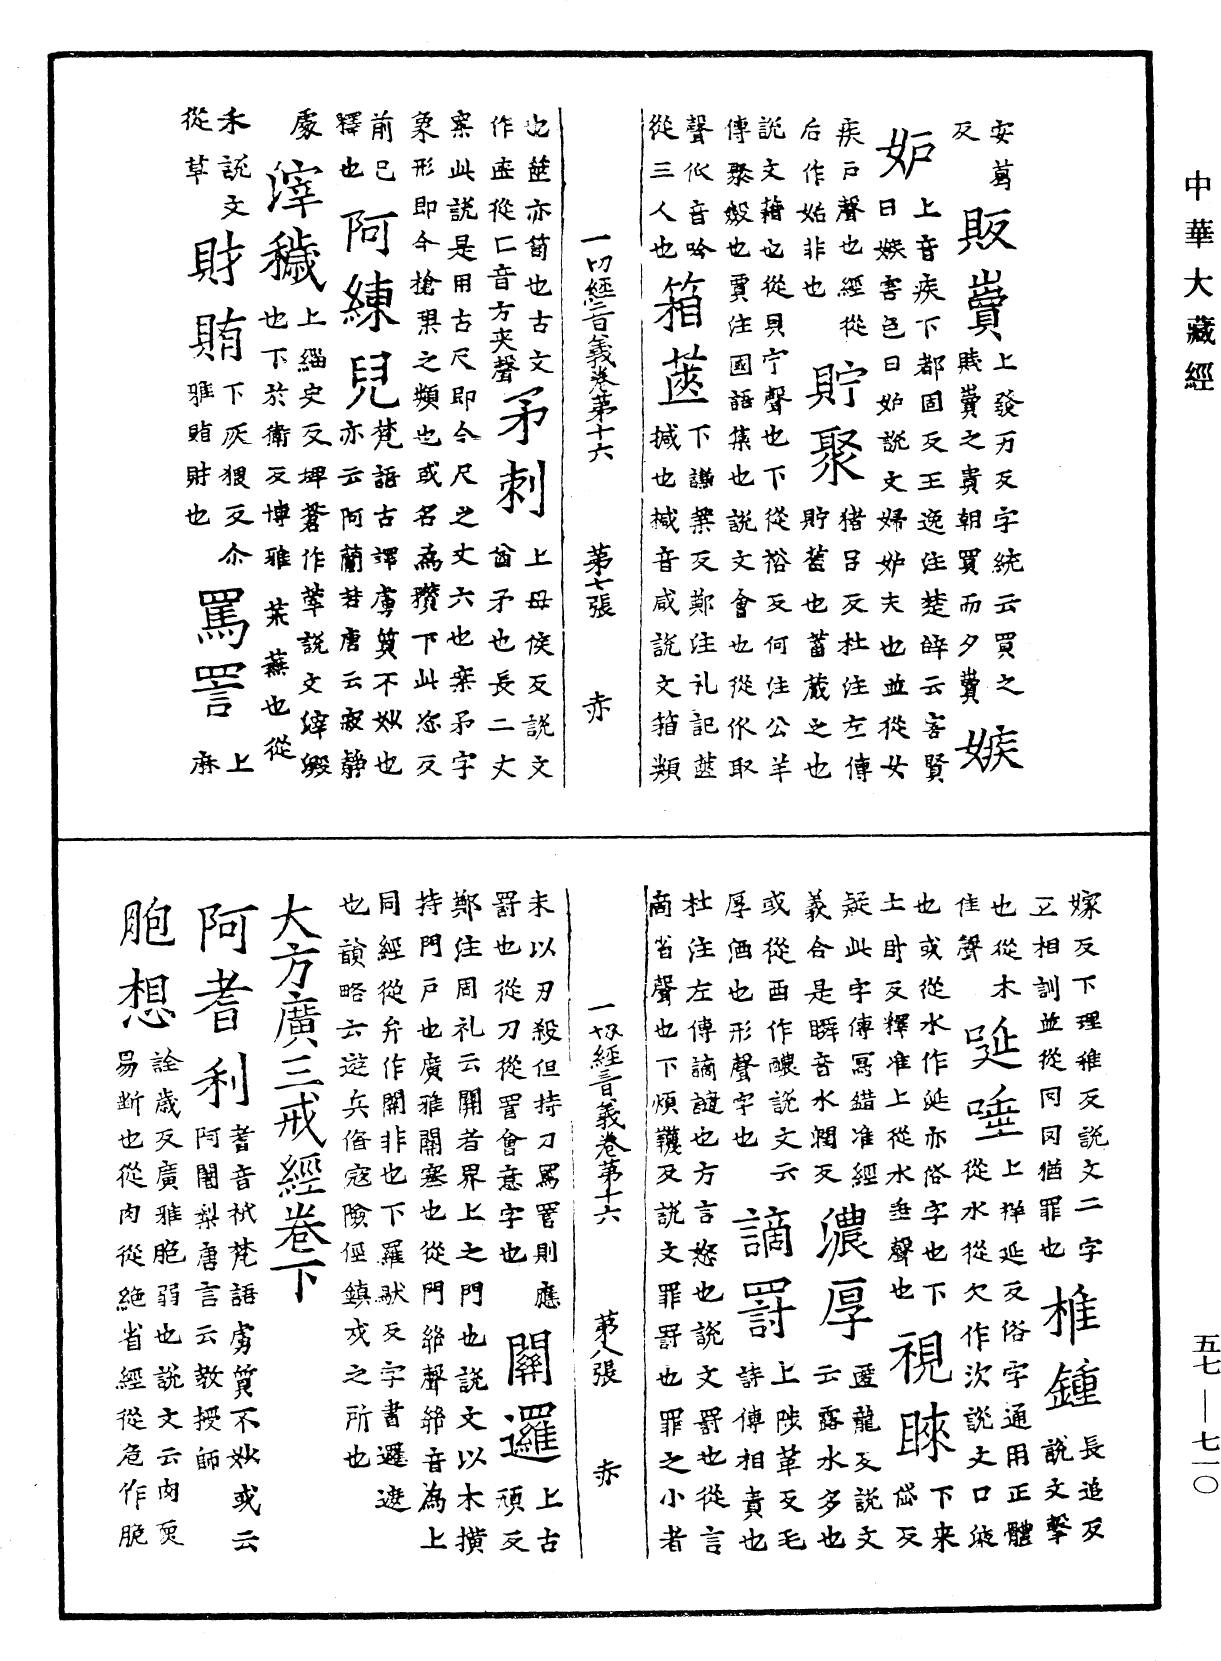 中華大藏經
安葛
反
販賣上發万反字統云買之
賤賣之貴朝買而夕賣
嫉
妒上音疾下都固反王逸注楚辝云害賢
曰嫉害色曰妒說文婦妒夫也並從女
疾戶聲也經從
后作妬非也
貯聚猪呂反杜注左傳
貯蓄也蓄藏之也
說文藉也從貝宁聲也下從裕反何注公羊
傳聚斂也賈注國語集也說文會也從㐺取
聲㐺音吟
從三人也
箱篋下謙葉反鄭注礼記篋
椷也椷音咸說文箱類
一切經音義卷第十六 第七張 赤
也篋亦笥也古文
作匧從匚音方夾聲
矛刺上母侯反說文
酋矛也長二丈
案此說是用古尺即今尺之丈六也案矛字
象形即今槍槊之類也或名為䂎下此恣反
前已
釋也
阿練兒梵語古譯虜質不妙也
亦云阿蘭若唐云寂靜
處
滓穢上緇史反埤蒼作𦸣說文滓澱
也下於衛反博雅荒蕪也從
禾說文
從草
財賄下灰猥反尒
雅賄財也
罵詈上
麻
嫁反下理稚反說文二字
互相訓並從冈冈猶罪也
椎鍾長追反
說文擊
也從木
隹聲
唌唾上祥延反俗字通用正體
從水從欠作㳄說文口液
也或從水作涎亦俗字也下
土卧反釋准上從水垂聲也
視睞下来
岱反
疑此字傳寫錯准經
義合是瞬音水潤反
濃厚遱龍反說文
云露水多也
或從酉作醲說文云
厚酒也形聲字也
謫罰上陟革反毛
詩傳相責也
杜注左傳謫譴也方言怒也說文罰也從言
啇省聲也下煩韈反說文罪罰也罪之小者
一切經音義卷第十六 第八張 赤
未以刃殺但持刀罵詈則應
罸也從刀從詈會意字也
關邏上古
頑反
鄭注周礼云關者界上之門也說文以木撗
持門戶也廣雅關塞也從門𢇇聲𢇇音為上
同經從弁作開非也下羅馱反字書邏遮
也韻略云遊兵俻寇險徑鎮戍之所也
大方廣三戒經卷下
阿耆利耆音祇梵語虜質不妙或云
阿闍梨唐言云教授師
脃想詮歲反廣雅脃弱也說文云肉耎
易断也從肉從絶省經從危作脆
五七—七一〇